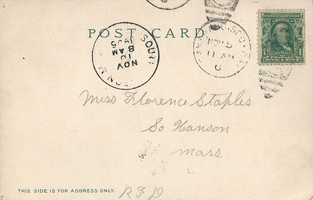 POST CARD
SOUTH
NOV
10
8 AM
1905
NOV 5
11 AM
Miss Florence Staples
So Hanson
Mass
THIS SIDE IS FOR ADDRESS ONLY.
R.F.D